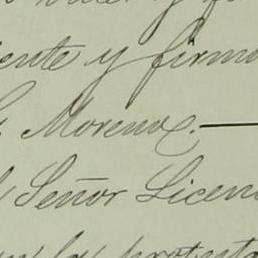 ente y firm
Moreno.—
Señor Licen
protesta